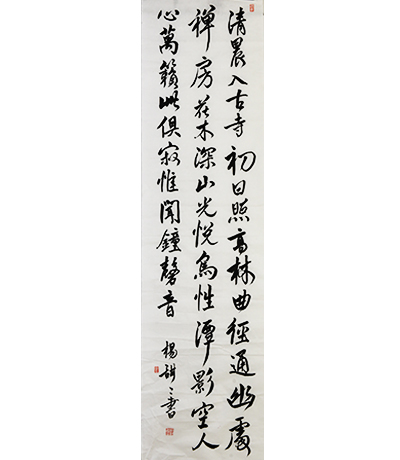 清晨入古寺初日照高林曲徑通幽處
禪房花木深山光悅鳥性潭影空人
心萬籟此俱寂惟聞鐘磬音
楊書